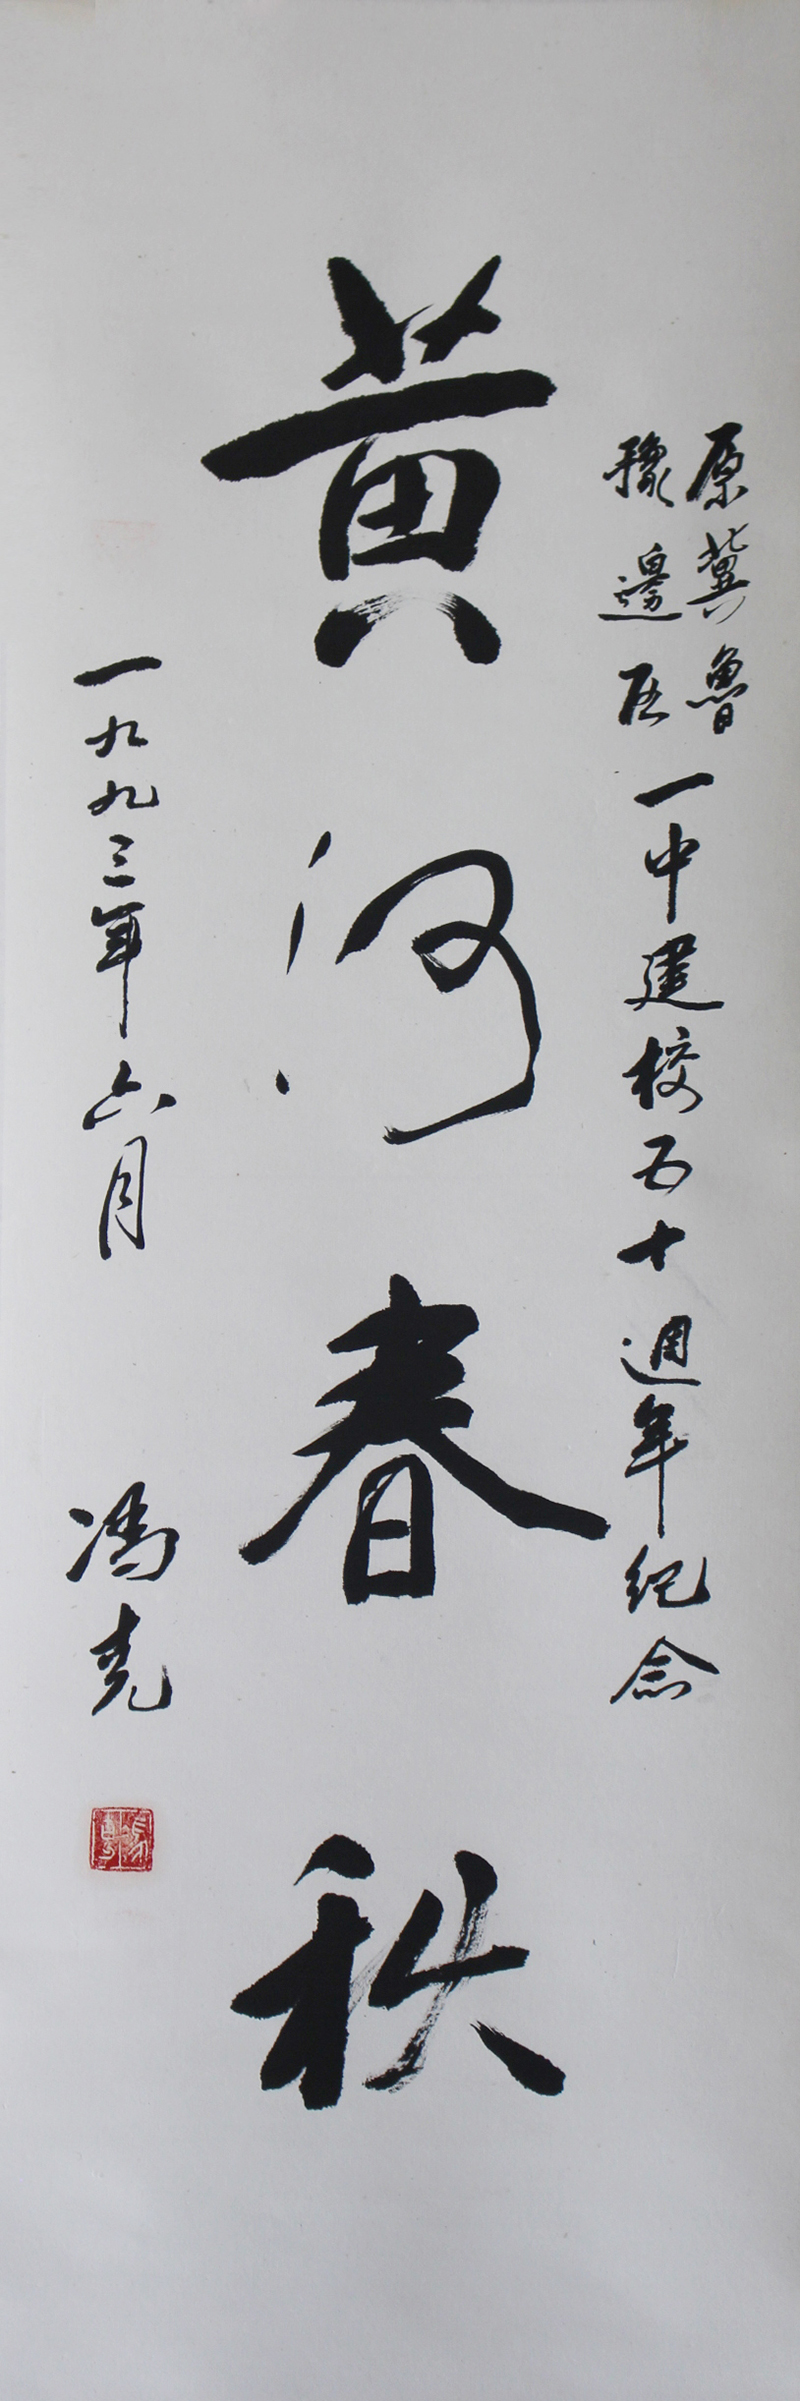 原冀魯
豫邊区
一中建校五十週年紀念
黄河春秋
一九九三年六月
馮克